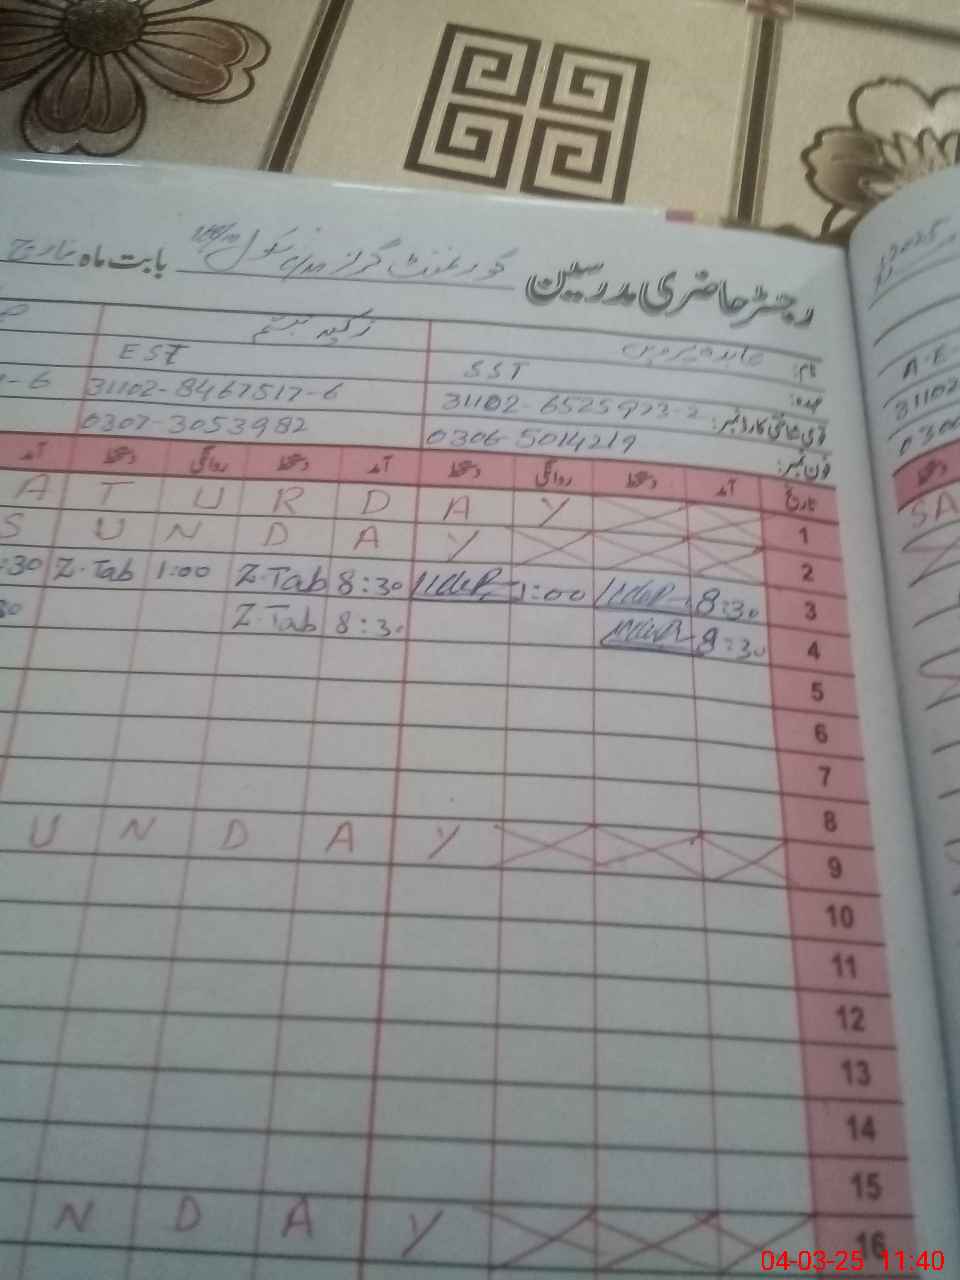 رجسٹر حاضری مدرسین گورنمنٹ گرلز سکول بابت ماہ مارچ
نام: عابدہ پروین زکیہ تبسم
عہدہ: SST EST
قومی شناختی کارڈ نمبر: 31102-6525923-2 31102-8467517-6 -6
فون نمبر: 0306-5014219 0307-3053982
تاریخ آمد دستخط روانگی دستخط آمد دستخط روانگی دستخط آمد
1 A T U R D A Y
2 S U N D A Y
3 8:30 1:00 8:30 Z.Tab 1:00 Z.Tab :30
4 8:30 8:30 Z.Tab 30
5
6
7
8
9 U N D A Y
10
11
12
13
14
15
16 N D A Y
2025
A.E
31102
0300
دستخط
SA
04-03-25 11:40